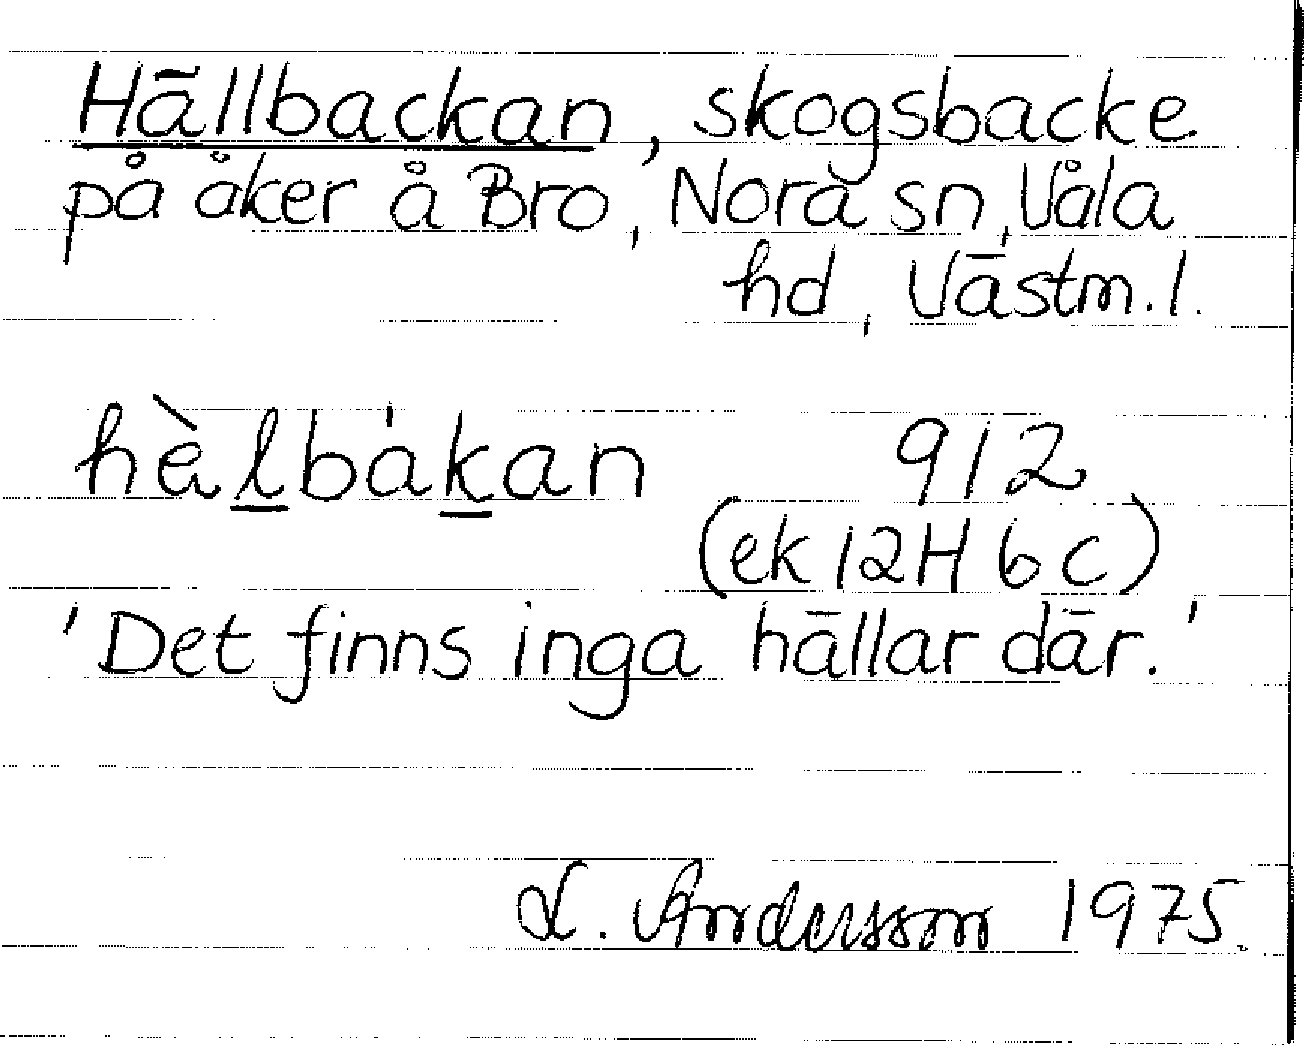 Hällbackan, skogsbacke
på åker å Bro, Nora sn, Våla
hd, Västm. l.
hèlbákan 912
(ek 12H 6c)
'Det finns inga hällar där.'
L. Andersson 1975.